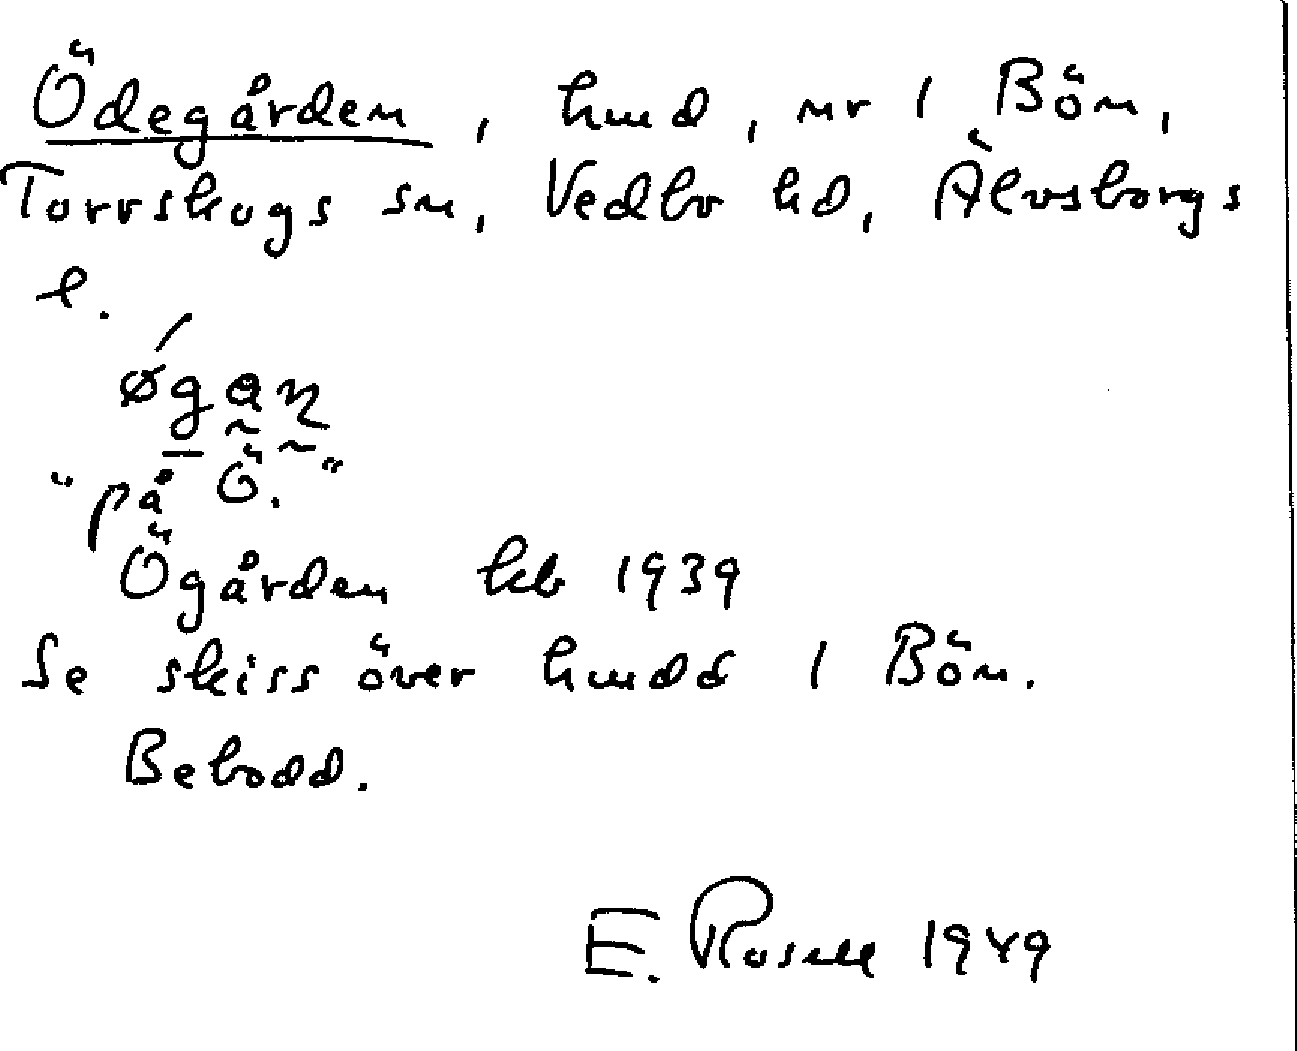 Ödegården, hmd, nr 1 Bön,
Torrskogs sn, Vedbo hd, Älvsborgs
l.
"på Ö."
Ögården kb 1939
Se skiss över hmdd 1 Bön.
Bebodd.
E. Rosell 1949